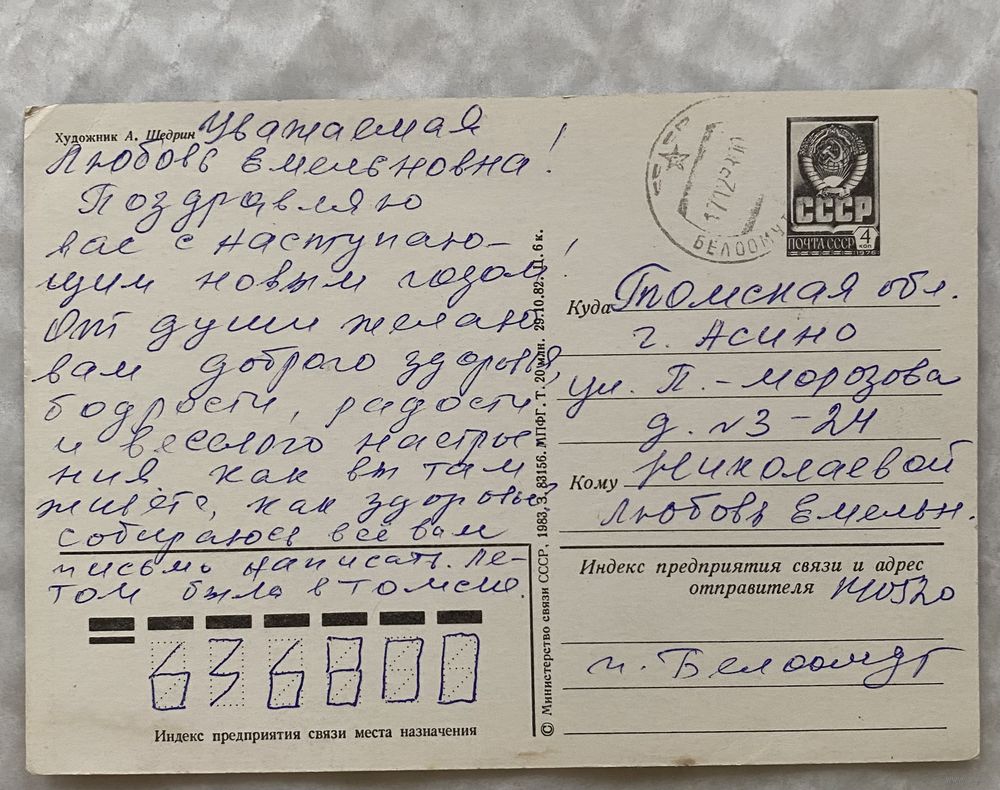 Художник А. Щедрин
Уважаемая
Любовь Емельновна!
Поздравляю
вас с наступаю-
щим новым годом!
От души желаю
вам доброго здоровья,
бодрости, радости
и веселого настрое
ния. Как вы там
живете, как здоровье
собираюсь всё вам
письмо написать. Ле-
том была в Томске.
636800
Индекс предприятия связи места назначения
© Министерство связи СССР, 1983. З. 83156. МПФГ. Т. 20 млн. 29.10.82. Ц. 6 к.
БЕЛООМУТ
СССР
ПОЧТА СССР 4 КОП
1976
Куда Томская обл.
г. Асино
ул. П.-Морозова
д. №3-24
Кому Николаевой
Любовь Емельн.
Индекс предприятия связи и адрес
отправителя 140520
п. Белоомут